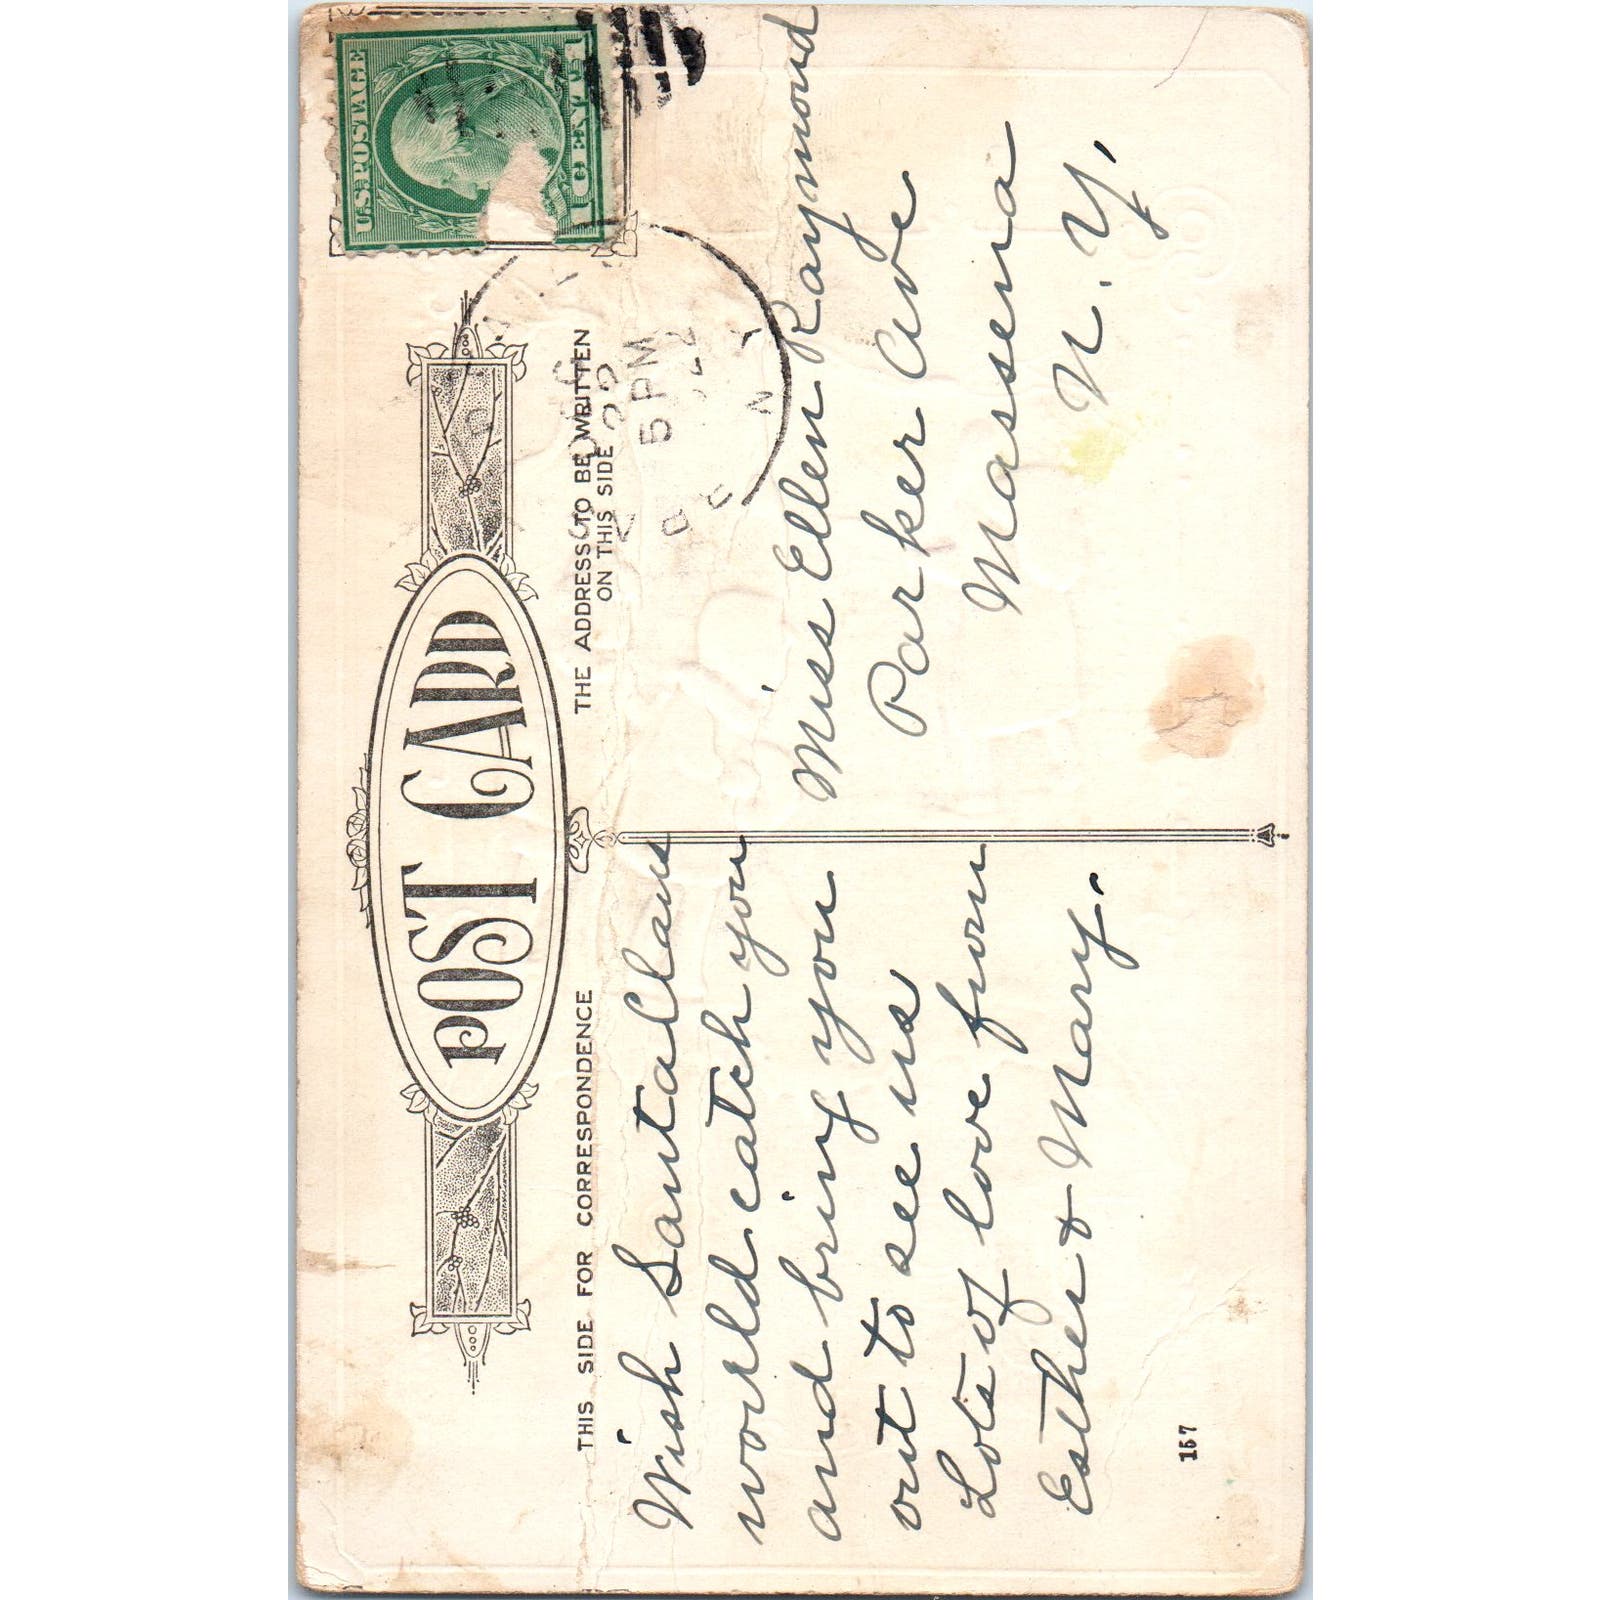 U.S. POSTAGE
1 CENT 1
POST CARD
THIS SIDE FOR CORRESPONDENCE
THE ADDRESS TO BE WRITTEN
ON THIS SIDE
22
5 PM
N Y
Wish Santa Claus
would catch you
and bring you
out to see us
Lots of love from
Esther & Mary.
Miss Ellen Raymond
Parker Ave
Massena
N. Y.
157